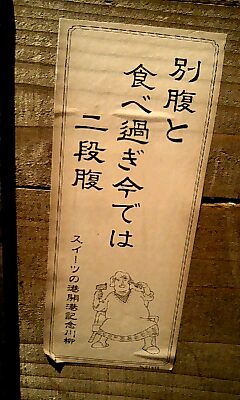 別腹と
食べ過ぎ今では
二段腹
スイーツの港開港記念川柳